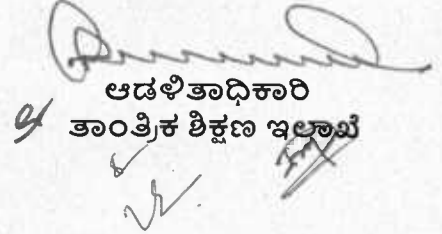 ಆಡಳಿತಾಧಿಕಾರಿ
ತಾಂತ್ರಿಕ ಶಿಕ್ಷಣ ಇಲಾಖೆ